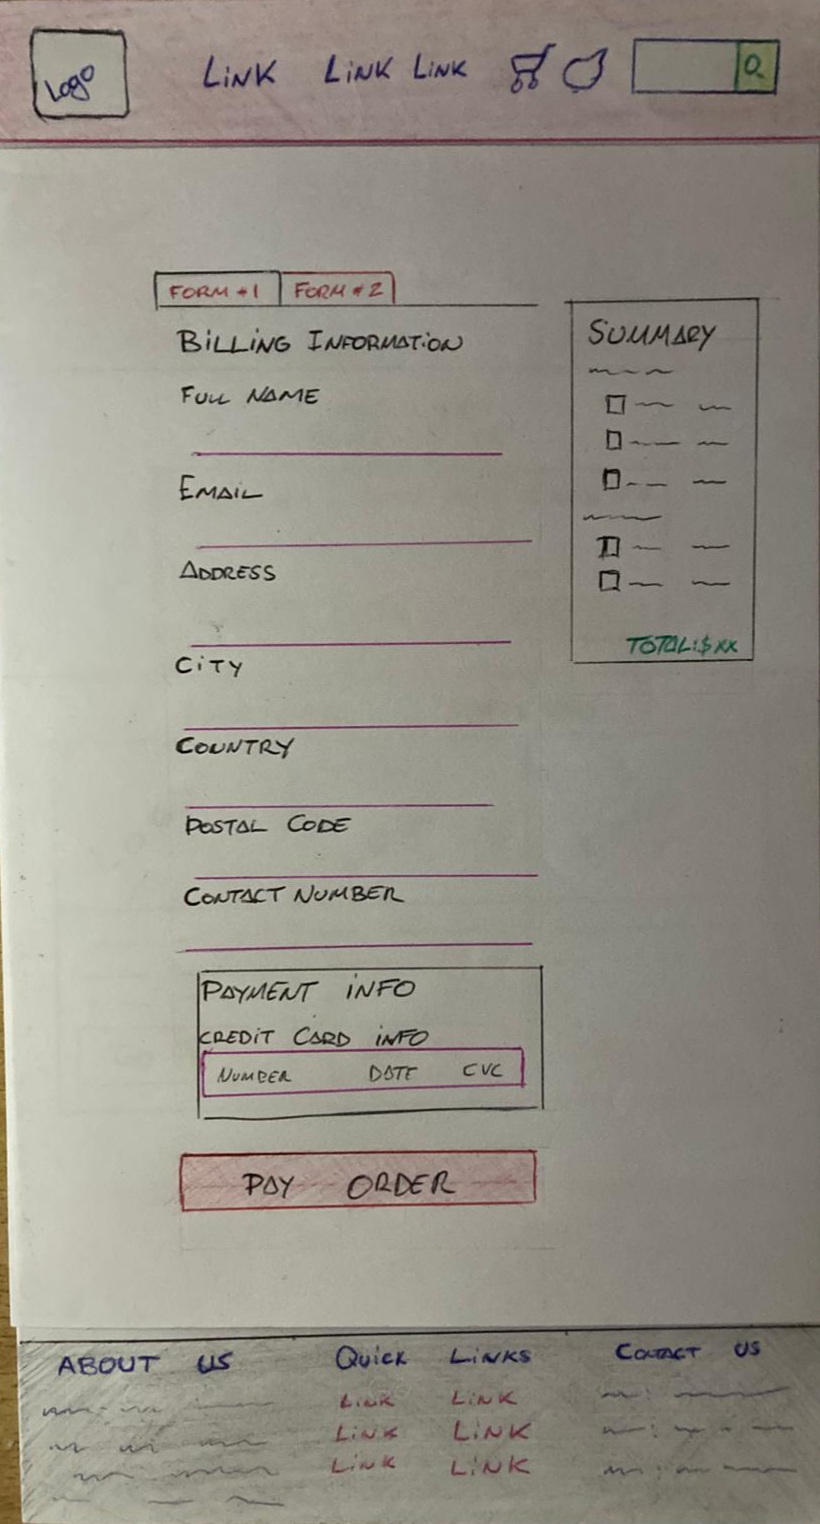 Logo LiNK LiNK LiNK
FORM #1 FORM #2
BiLLiNG INFORMATiON
FULL NAME
EMAiL
ADDRESS
CiTY
COUNTRY
POSTAL CODE
CONTACT NUMBER
PAYMENT iNFO
CREDiT CARD iNFO
NUMBER DATE CVC
PAY ORDER
SUMMARY
TOTAL:$XX
ABOUT US
QUiCK LiNKS
LiNK LiNK
LiNK LiNK
LiNK LiNK
CONTACT US